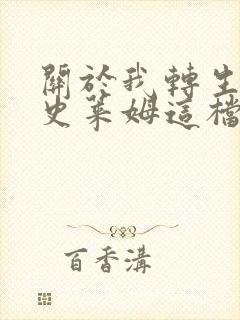 關於我轉生
史萊姆這檔
百香溝